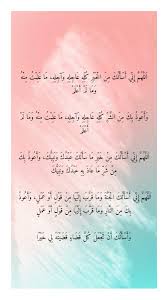 اللَّهُمَّ إِنِّي أَسْأَلُكَ مِنَ الْخَيْرِ كُلِّهِ عَاجِلِهِ وَآجِلِهِ، مَا عَلِمْتُ مِنْهُ
وَمَا لَمْ أَعْلَمْ
وَأَعُوذُ بِكَ مِنَ الشَّرِّ كُلِّهِ عَاجِلِهِ وَآجِلِهِ، مَا عَلِمْتُ مِنْهُ وَمَا لَمْ
أَعْلَمْ
اللَّهُمَّ إِنِّي أَسْأَلُكَ مِنْ خَيْرِ مَا سَأَلَكَ عَبْدُكَ وَنَبِيُّكَ، وَأَعُوذُ بِكَ
مِنْ شَرِّ مَا عَاذَ بِهِ عَبْدُكَ وَنَبِيُّكَ
اللَّهُمَّ إِنِّي أَسْأَلُكَ الْجَنَّةَ وَمَا قَرَّبَ إِلَيْهَا مِنْ قَوْلٍ أَوْ عَمَلٍ، وَأَعُوذُ
بِكَ مِنَ النَّارِ وَمَا قَرَّبَ إِلَيْهَا مِنْ قَوْلٍ أَوْ عَمَلٍ
وَأَسْأَلُكَ أَنْ تَجْعَلَ كُلَّ قَضَاءٍ قَضَيْتَهُ لِي خَيْرًا